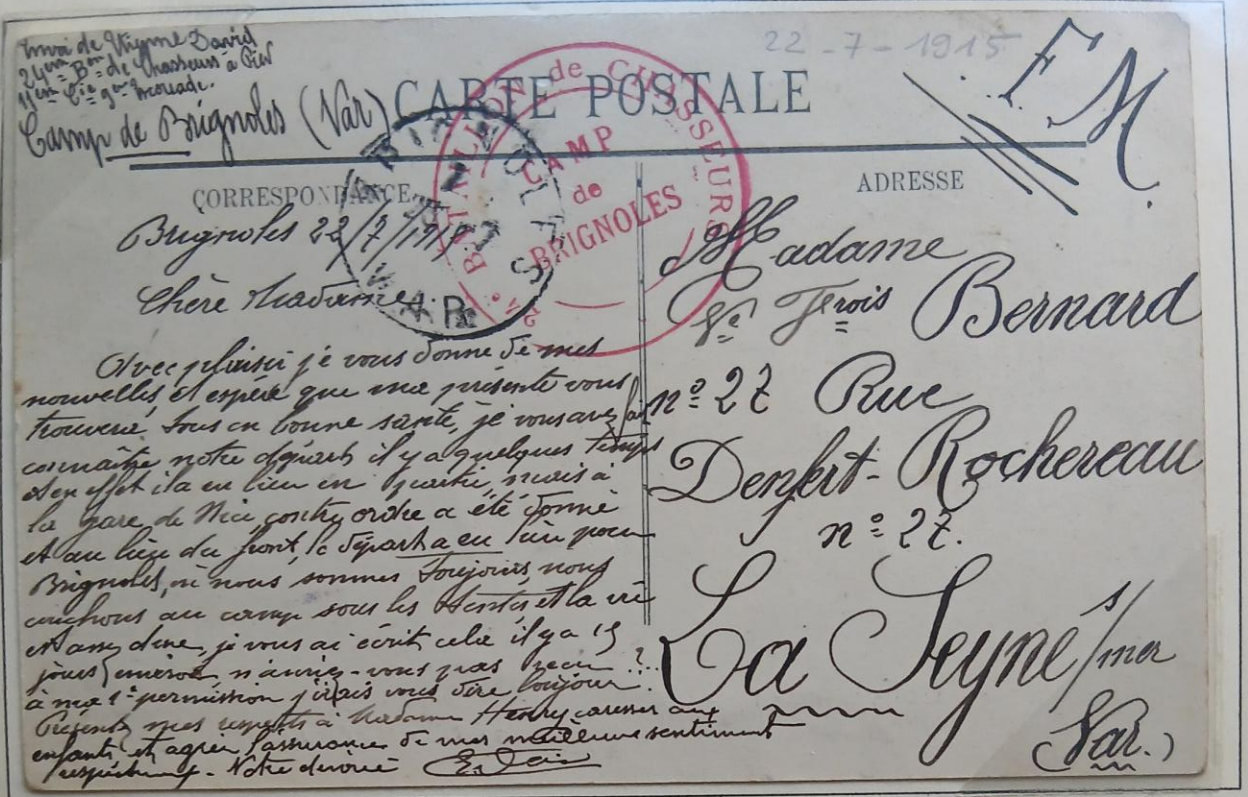 22-7-1915
F.M.
Envoi de David
24ème Bon de Chasseurs à Pied
11ème Cie 9me escouade.
Camp de Brignoles (Var)
CARTE POSTALE
24e BATAILLON de CHASSEURS
CAMP
de
BRIGNOLES
VAR
CORRESPONDANCE
ADRESSE
Brignoles 22/7/1915
Chère Madame.
Avec plaisir je vous donne de mes
nouvelles et espère que ma présente vous
trouvera tous en bonne santé, je vous avez fait
connaître notre départ il y a quelques temps
et en effet il a eu lieu en partie, mais à
la gare de Nice, contre ordre a été donné
et au lieu du front, le départ a eu lieu pour
Brignoles, où nous sommes toujours, nous
couchons au camp sous les tentes et la vie
est, je vous ai écrit cela il y a 15
jours environ n'auriez-vous pas reçu ?..
à ma 1e permission j'irais vous dire bonjour.
Présentez mes respects à Madame Henry caresses aux
enfants et agréer l'assurance de mes meilleurs sentiment
respectueux. Votre dévoué
Madame
Ve Frois Bernard
n° 27 Rue
Denfert-Rochereau
n° 27.
La Seyne s/mer
(Var.)